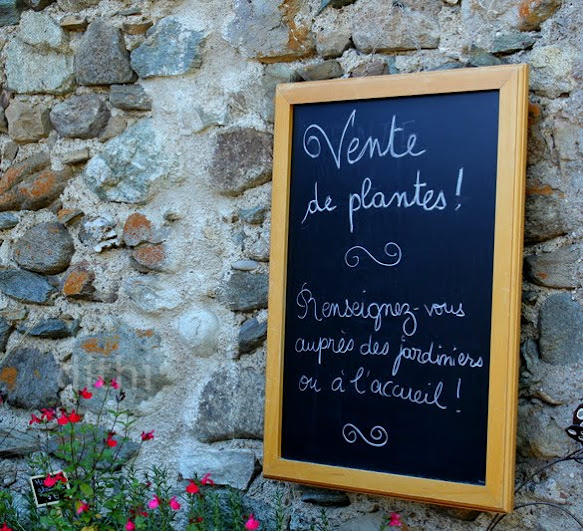 Vente
de plantes!
Renseignez-vous
auprès des jardiniers
ou à l'accueil !